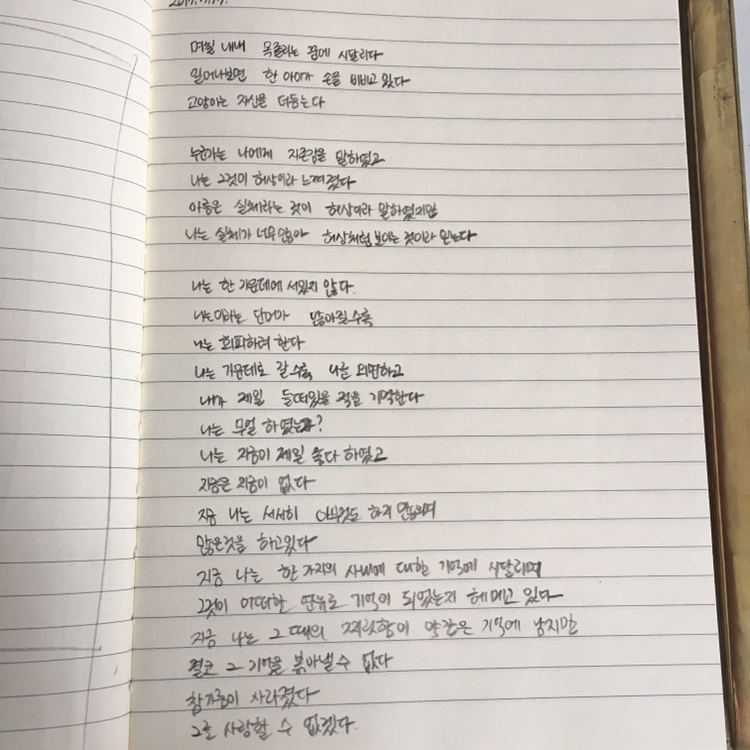 며칠 내내 목졸리는 꿈에 시달리다
일어나보면 한 아이가 손을 비비고 있다
고양이는 자신을 더듬는다
누군가는 나에게 자존감을 말하였고
나는 그것이 허상이라 느껴졌다
아름은 실체라는 것이 허상이라 말하였지만
나는 실체가 너무 많아 허상처럼 보이는 것이라 믿는다
나는 한 가운데에 서있지 않다.
나는이라는 단어가 많아질수록
나는 회피하려 한다
나는 가운데로 갈수록 나를 외면하고
내가 제일 들떠있을 적을 기억한다
나는 무얼 하였는가?
나는 지금이 제일 슬다 하였고
지금은 지금이 없다
지금 나는 서서히 아무것도 하지 않으며
많은것을 하고있다
지금 나는 한 자지의 사내에 대한 기억에 시달리며
그것이 어떠한 연유로 기억이 되었는지 헤메고 있다
지금 나는 그 때의 찌릿함이 약간은 기억에 남지만
결코 그 기억을 뽑아낼수 없다
참기름이 사라졌다
그를 사랑할 수 없겠다.